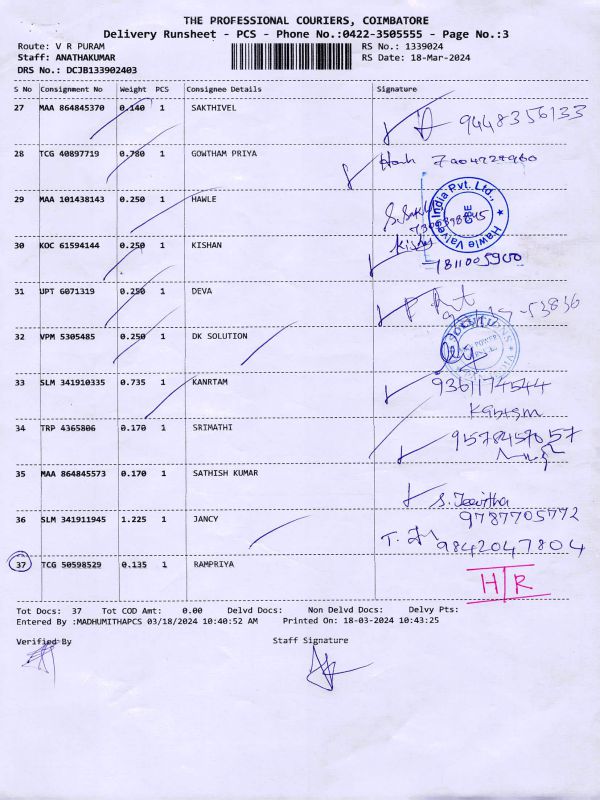 THE PROFESSIONAL COURIERS, COIMBATORE
Delivery Runsheet - PCS - Phone No.:0422-3505555 - Page No.:3
Route: V R PURAM RS No.: 1339024
Staff: ANATHAKUMAR RS Date: 18-Mar-2024
DRS No.: DCJB133902403
S No Consignment No Weight PCS Consignee Details Signature
27 MAA 864845370 0.140 1 SAKTHIVEL 9448356133
28 TCG 40897719 0.780 1 GOWTHAM PRIYA
29 MAA 101438143 0.250 1 HAWLE
Hawle Valves India Pvt. Ltd.,
30 KOC 61594144 0.250 1 KISHAN Kishan
7811005900
31 UPT 6071319 0.250 1 DEVA
32 VPM 5305485 0.250 1 DK SOLUTION
33 SLM 341910335 0.735 1 KANRTAM 9361174544
34 TRP 4365806 0.170 1 SRIMATHI 9578457057
35 MAA 864845573 0.170 1 SATHISH KUMAR S. Jeevitha
36 SLM 341911945 1.225 1 JANCY 9787705772
9842047804
37 TCG 50598529 0.135 1 RAMPRIYA H/R
Tot Docs: 37 Tot COD Amt: 0.00 Delvd Docs: Non Delvd Docs: Delvy Pts:
Entered By :MADHUMITHAPCS 03/18/2024 10:40:52 AM Printed On: 18-03-2024 10:43:25
Verified By Staff Signature